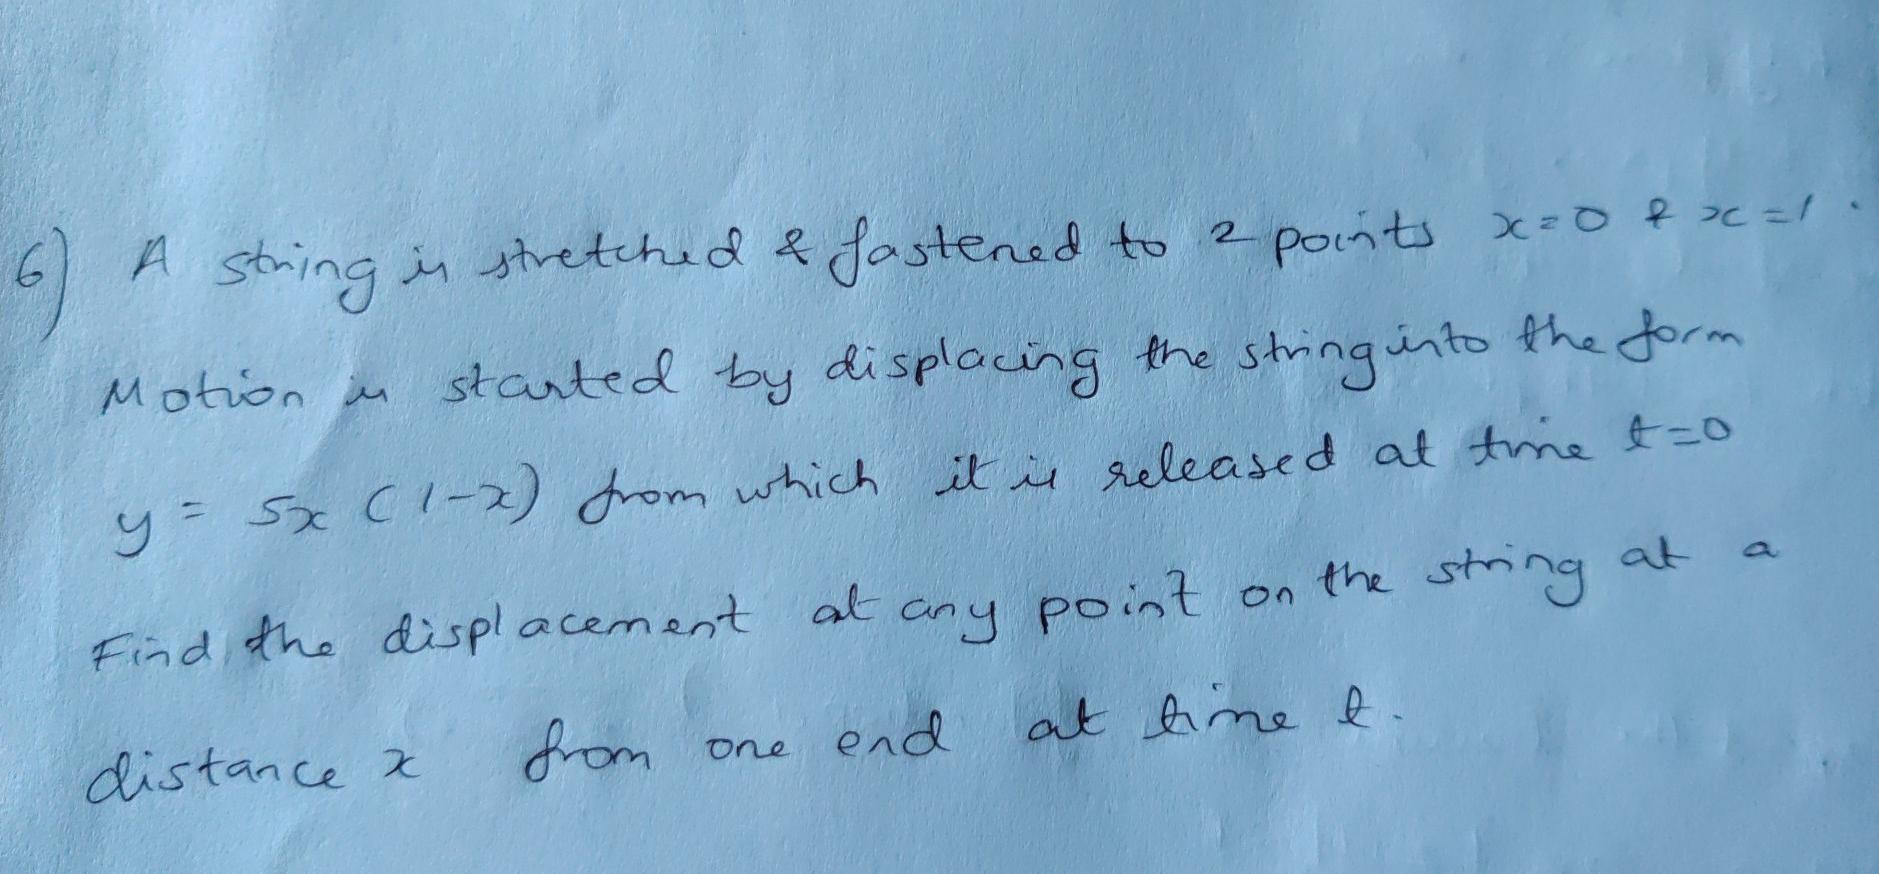 6) A string is stretched & fastened to 2 points x=0 & x=1.
Motion is started by displacing the string into the form
y = 5x (1-x) from which it is released at time t=0
Find the displacement at any point on the string at a
distance x from one end at time t.